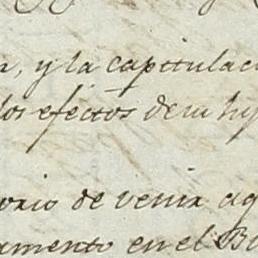 y la capitulac
los efectos de su hy
orio de venir aq
amento en el B